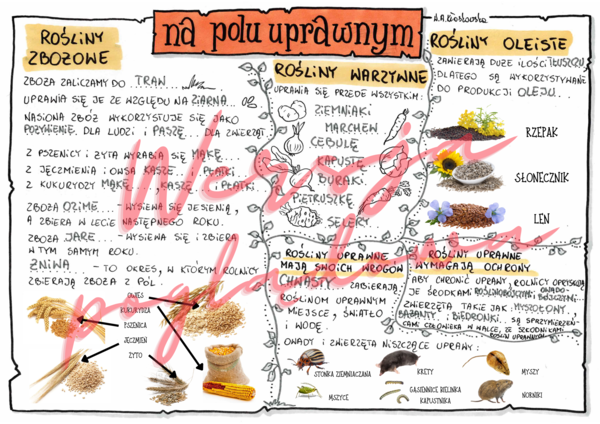 na polu uprawnym
ROŚLINY
ZBOŻOWE
ZBOŻA ZALICZAMY DO TRAW
UPRAWIA SIĘ JE ZE WZGLĘDU NA ZIARNA
NASIONA ZBÓŻ WYKORZYSTUJE SIĘ JAKO
POŻYWIENIE DLA LUDZI I PASZĘ DLA ZWIERZĄT
Z PSZENICY I ŻYTA WYRABIA SIĘ MĄKĘ
Z JĘCZMIENIA I OWSA KASZE I PŁATKI
Z KUKURYDZY MĄKĘ, KASZĘ I PŁATKI
ZBOŻA OZIME - WYSIEWA SIĘ JESIENIĄ,
A ZBIERA W LECIE NASTĘPNEGO ROKU.
ZBOŻA JARE - WYSIEWA SIĘ I ZBIERA
W TYM SAMYM ROKU.
ŻNIWA - TO OKRES, W KTÓRYM ROLNICY
ZBIERAJĄ ZBOŻA Z PÓL
OWIES
KUKURYDZA
PSZENICA
JĘCZMIEŃ
ŻYTO
ROŚLINY WARZYWNE
UPRAWIA SIĘ PRZEDE WSZYSTKIM:
ZIEMNIAKI
MARCHEW
CEBULĘ
KAPUSTĘ
BURAKI
PIETRUSZKĘ
SELERY
ROŚLINY OLEISTE
ZAWIERAJĄ DUŻE ILOŚCI TŁUSZCZU
DLATEGO SĄ WYKORZYSTYWANE
DO PRODUKCJI OLEJU
RZEPAK
SŁONECZNIK
LEN
ROŚLINY UPRAWNE
MAJĄ SWOICH WROGÓW
CHWASTY ZABIERAJĄ
ROŚLINOM UPRAWNYM
MIEJSCE, ŚWIATŁO
I WODĘ
ROŚLINY UPRAWNE
WYMAGAJĄ OCHRONY
ABY CHRONIĆ UPRAWY, ROLNICY OPRYSKUJĄ
JE ŚRODKAMI ROŚLINOBÓJCZYMI, OWADO-
BÓJCZYMI
ZWIERZĘTA TAKIE JAK: MYSZOŁOWY,
BAŻANTY, BIEDRONKI, SĄ SPRZYMIERZEŃ-
CAMI CZŁOWIEKA W WALCE ZE SZKODNIKAMI
ROŚLIN UPRAWNYCH
OWADY I ZWIERZĘTA NISZCZĄCE UPRAWY:
STONKA ZIEMNIACZANA
KRETY
MYSZY
MSZYCE
GĄSIENNICE BIELINKA
KAPUSTNIKA
NORNIKI
Wersja
poglądowa